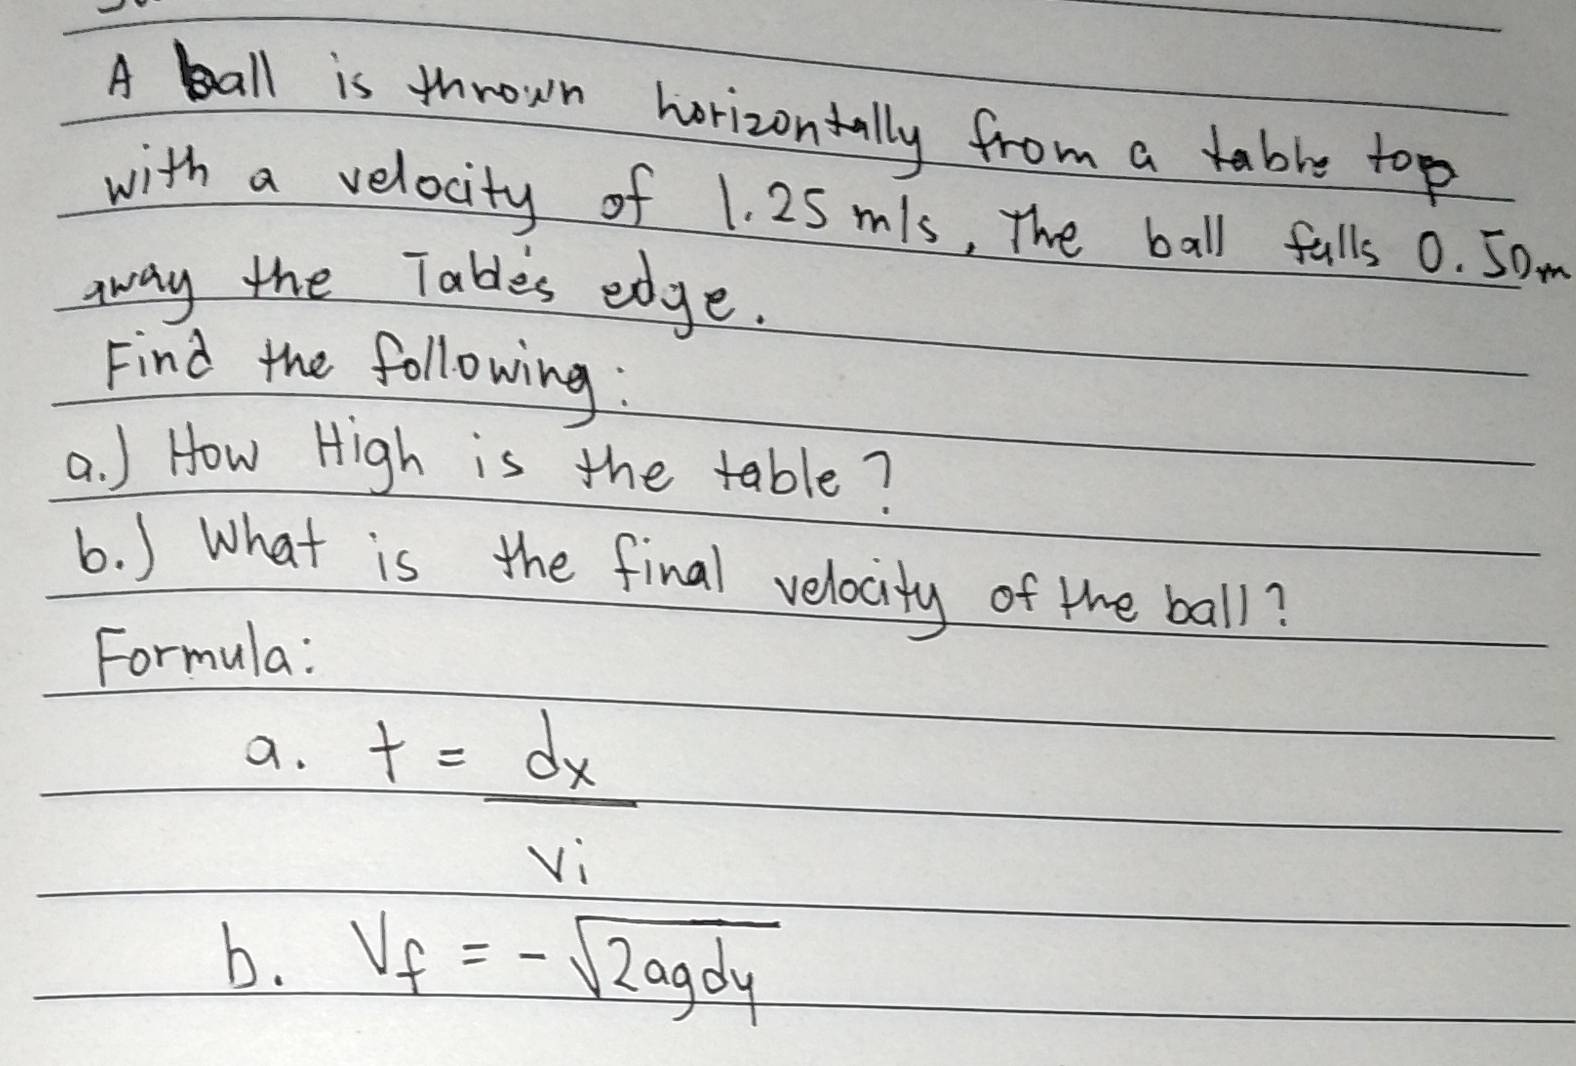 A ball is thrown horizontally from a table top
with a velocity of 1.25 m/s, The ball falls 0.50m
away the Table's edge.
Find the following:
a.) How High is the table?
b.) What is the final velocity of the ball?
Formula:
a. t = dx
vi
b. Vf = -√2agdy